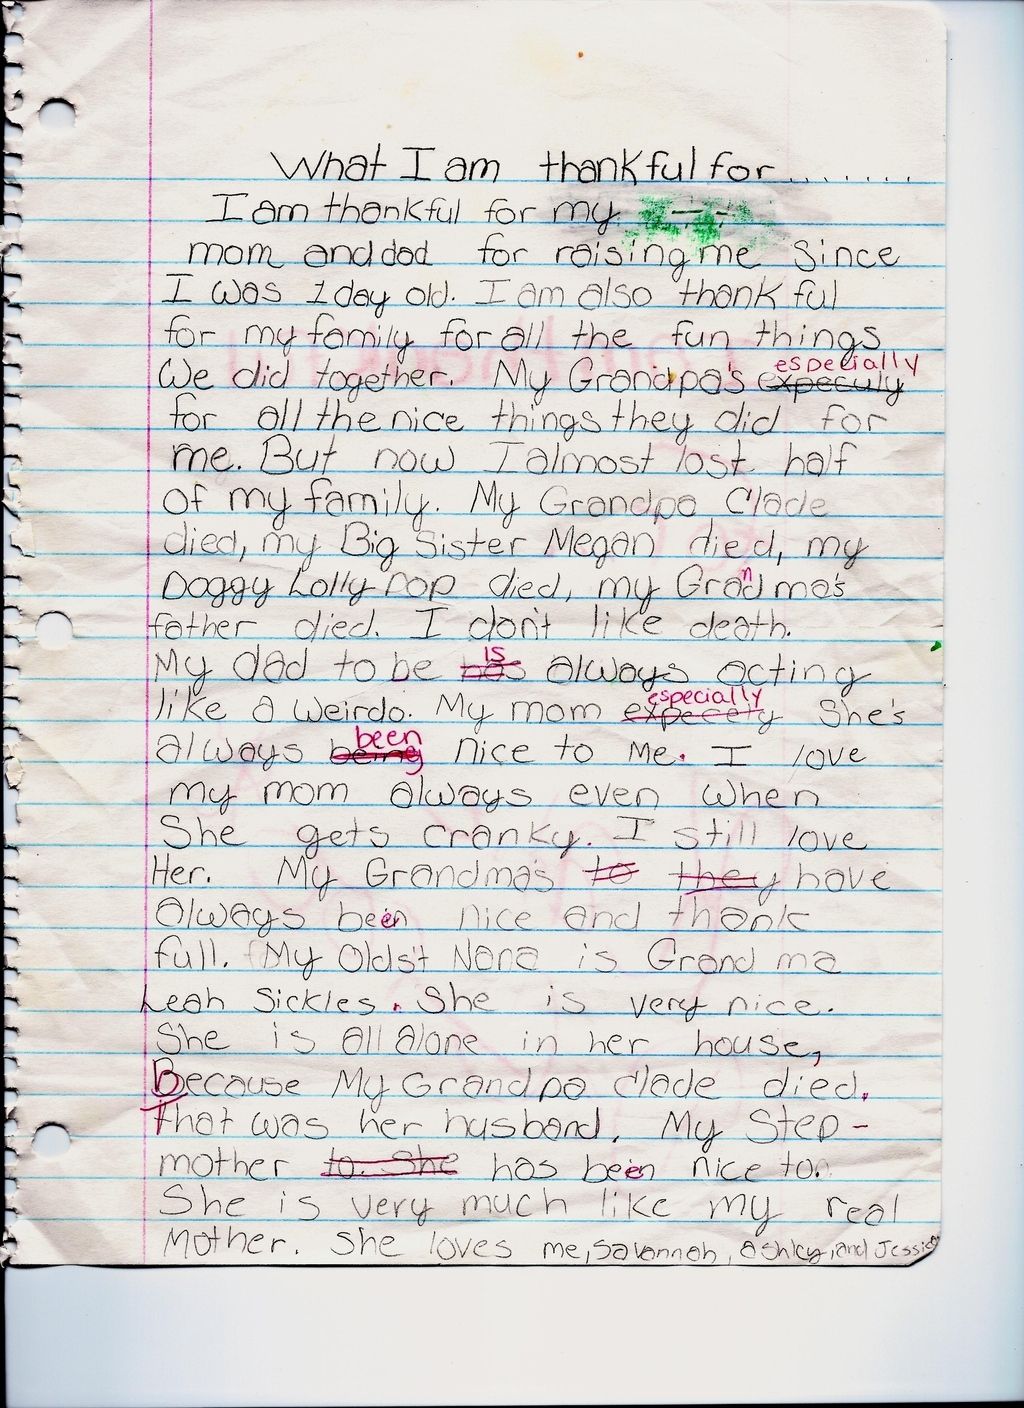 What I am thankful for.......
I am thankful for my
mom and dad for raising me since
I was 1 day old. I am also thankful
for my family for all the fun things
We did together. My Grandpa's expeculy especially
for all the nice things they did for
me. But now I almost lost half
of my family. My Grandpa Clade
died, my Big Sister Megan died, my
Doggy Lolly Pop died, my Grandma's
father died. I don't like death.
My dad to be has is always acting
like a weirdo. My mom expecety especially She's
always being been nice to me. I love
my mom always even when
She gets cranky. I still love
Her. My Grandma's to they have
always been nice and thank
full. My Olds't Nana is Grand ma
Leah Sickles. She is very nice.
She is all alone in her house,
Because My Grandpa Clade died.
That was her husband. My Step-
mother to. She has been nice to.
She is very much like my real
Mother. She loves me, Savannah, ashley, and Jessica